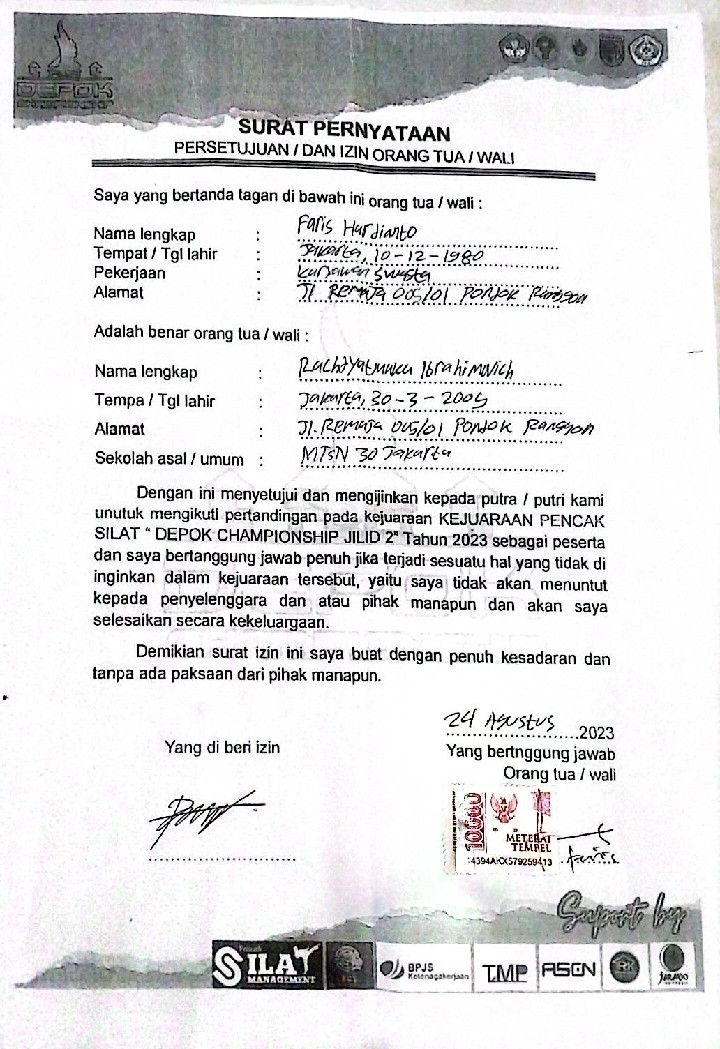 DEPOK
SURAT PERNYATAAN
PERSETUJUAN / DAN IZIN ORANG TUA / WALI
Saya yang bertanda tagan di bawah ini orang tua / wali :
Nama lengkap : Faris Hardianto
Tempat / Tgl lahir : Jakarta, 10-12-1980
Pekerjaan : Karyawan Swasta
Alamat : Jl. Remaja 005/01 Pondok Ranggon
Adalah benar orang tua / wali :
Nama lengkap : Ibrahimovich
Tempa / Tgl lahir : Jakarta, 30-3-2009
Alamat : Jl. Remaja 005/01 Pondok Ranggon
Sekolah asal / umum : MTsN 30 Jakarta
Dengan ini menyetujui dan mengijinkan kepada putra / putri kami
unutuk mengikuti pertandingan pada kejuaraan KEJUARAAN PENCAK
SILAT “ DEPOK CHAMPIONSHIP JILID 2” Tahun 2023 sebagai peserta
dan saya bertanggung jawab penuh jika terjadi sesuatu hal yang tidak di
inginkan dalam kejuaraan tersebut, yaitu saya tidak akan menuntut
kepada penyelenggara dan atau pihak manapun dan akan saya
selesaikan secara kekeluargaan.
Demikian surat izin ini saya buat dengan penuh kesadaran dan
tanpa ada paksaan dari pihak manapun.
24 Agustus 2023
Yang di beri izin
Yang bertnggung jawab
Orang tua / wali
10000
METERAI
TEMPEL
Faris
Suport by
SILAT
MANAGEMENT
BPJS
Ketenagakerjaan
TMP